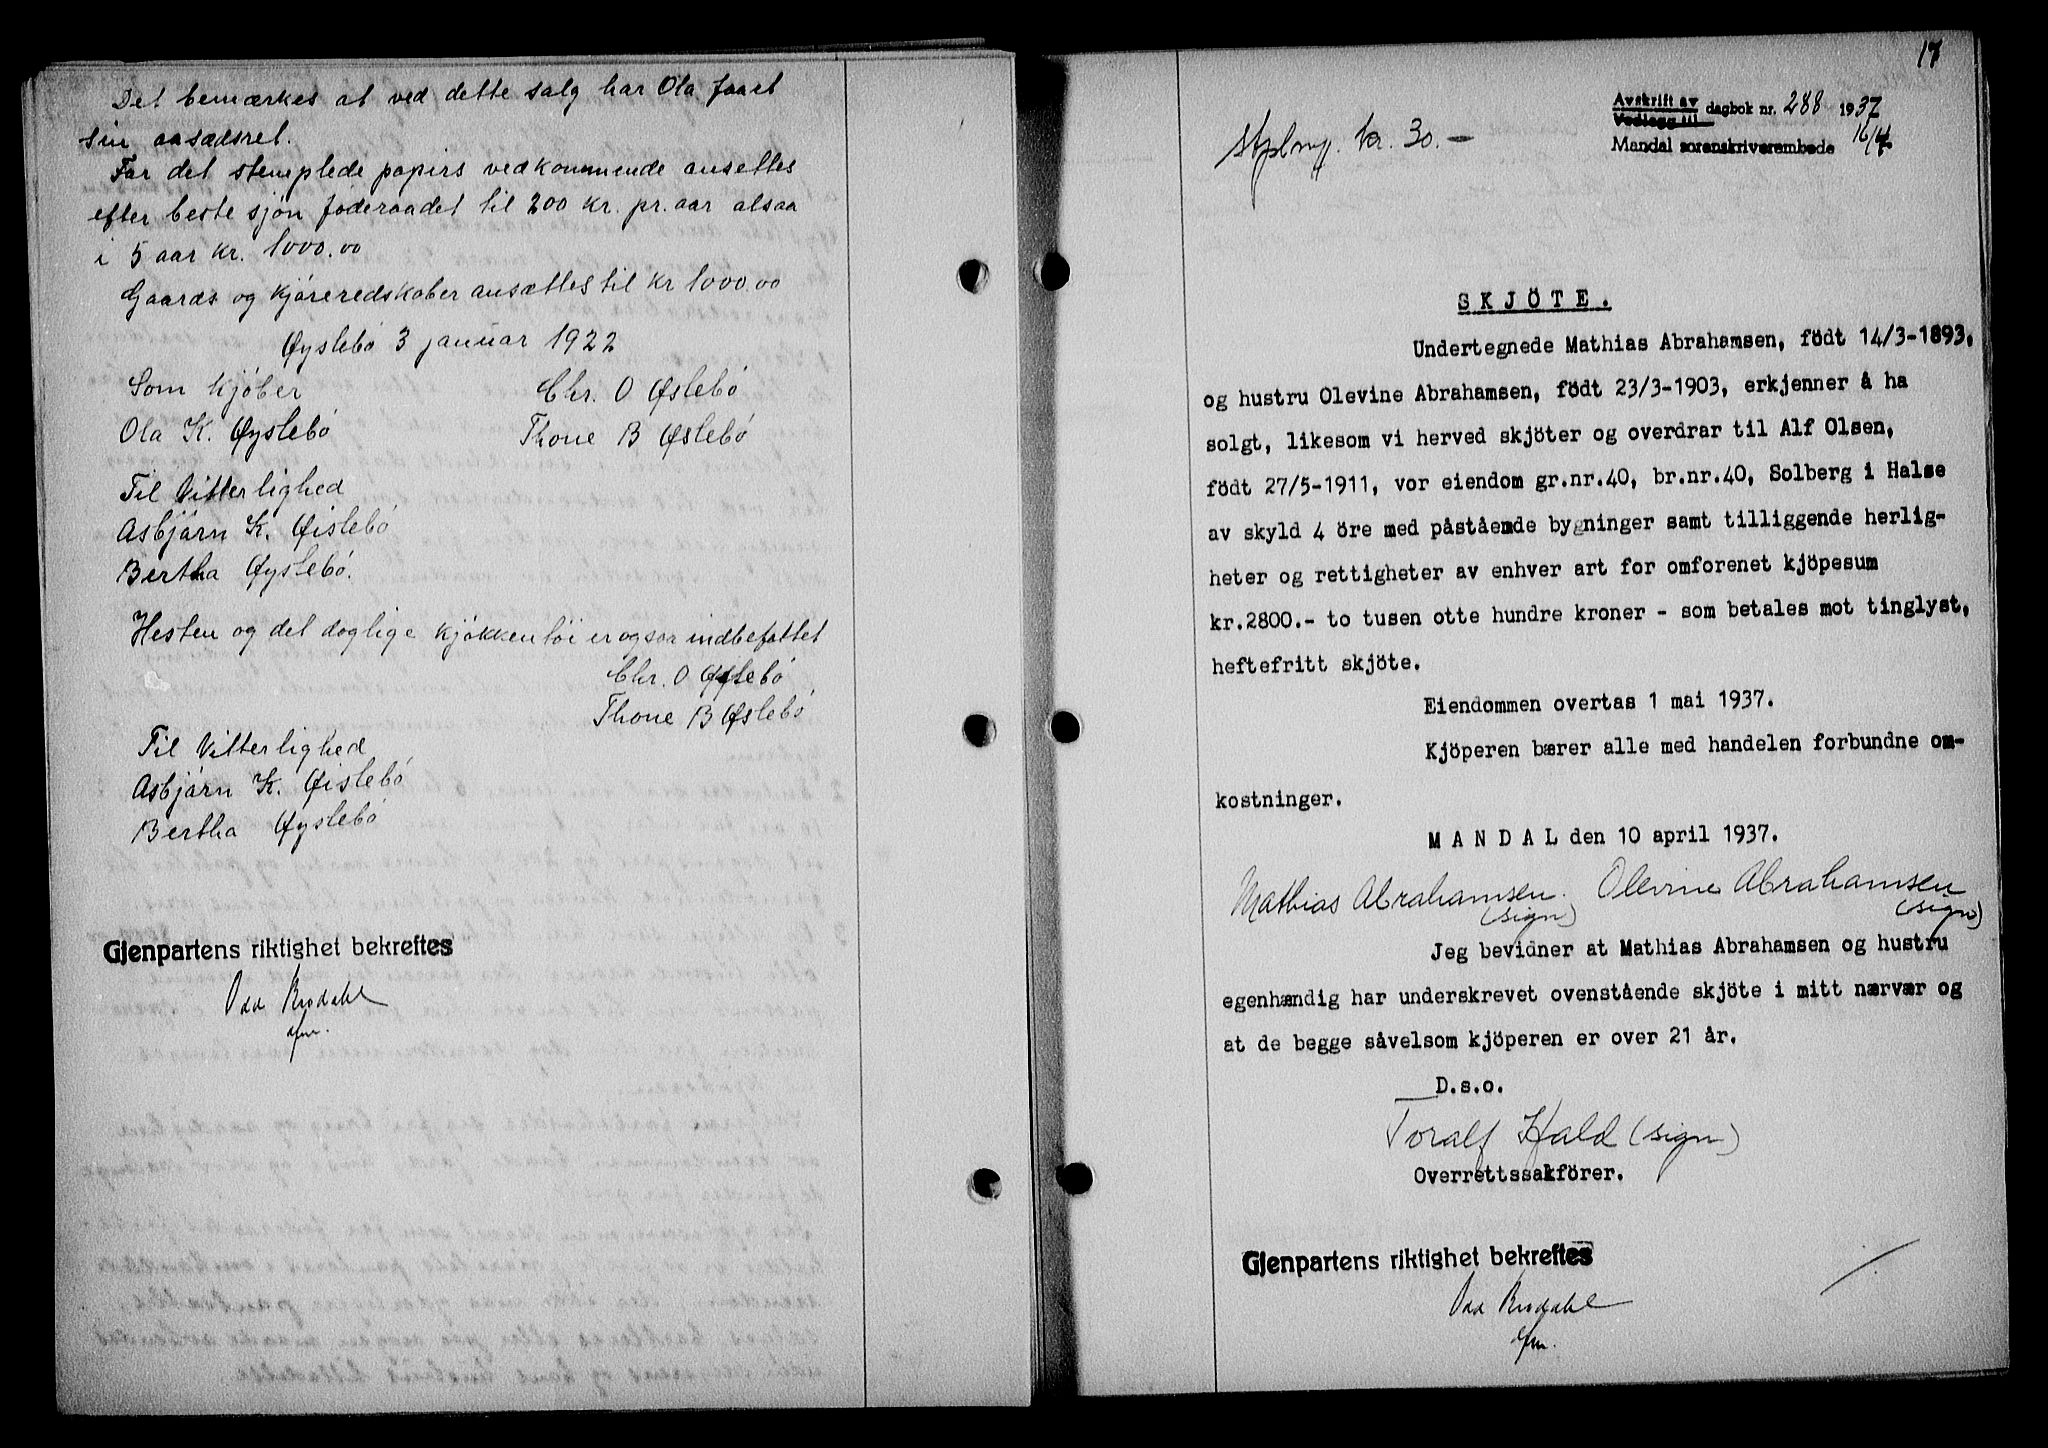 Det bemærkes at ved dette salg har Ola faaet
sin aasædsret.
For det stemplede papirs vedkommende ansettes
efter beste sjön föderaadet til 200 kr. pr. aar alsaa
i 5 aar kr. 1000.00
Gaards og kjöreredskaber ansættes til kr 1000.00
Øyslebö 3 januar 1922
Som kjöber
Chr. O Øslebö
Ola K. Øyslebö
Thone B Øslebö
Til Vitterlighed
Asbjörn K. Øislebö
Bertha Øyslebö.
Hesten og det daglige kjökkentöi er ogsaa indbefattet
Chr. O Øyslebö
Thone B Øslebö
Til Vitterlighed
Asbjörn K. Øislebö
Bertha Øyslebö
Gjenpartens riktighet bekreftes
Odd Brodahl
17
Avskrift av
Vedlegg til
dagbok nr. 288 1937
16/4
Mandal sorenskriverembede
kr. 30.-
SKJÖTE.
Undertegnede Mathias Abrahamsen, födt 14/3-1893,
og hustru Olevine Abrahamsen, födt 23/3-1903, erkjenner å ha
solgt, likesom vi herved skjöter og overdrar til Alf Olsen,
födt 27/5-1911, vor eiendom gr.nr.40, br.nr.40, Solberg i Halse
av skyld 4 öre med påstående bygninger samt tilliggende herlig-
heter og rettigheter av enhver art for omforenet kjöpesum
kr.2800.- to tusen otte hundre kroner - som betales mot tinglyst,
heftefritt skjöte.
Eiendommen overtas 1 mai 1937.
Kjöperen bærer alle med handelen forbundne om-
kostninger.
MANDAL den 10 april 1937.
Mathias Abrahamsen. Olevine Abrahamsen
(sign) (sign)
Jeg bevidner at Mathias Abrahamsen og hustru
egenhændig har underskrevet ovenstående skjöte i mitt nærvær og
at de begge såvelsom kjöperen er over 21 år.
D.s.o.
Toralf Hald (sign)
Overrettssakförer.
Gjenpartens riktighet bekreftes
Odd Brodahl